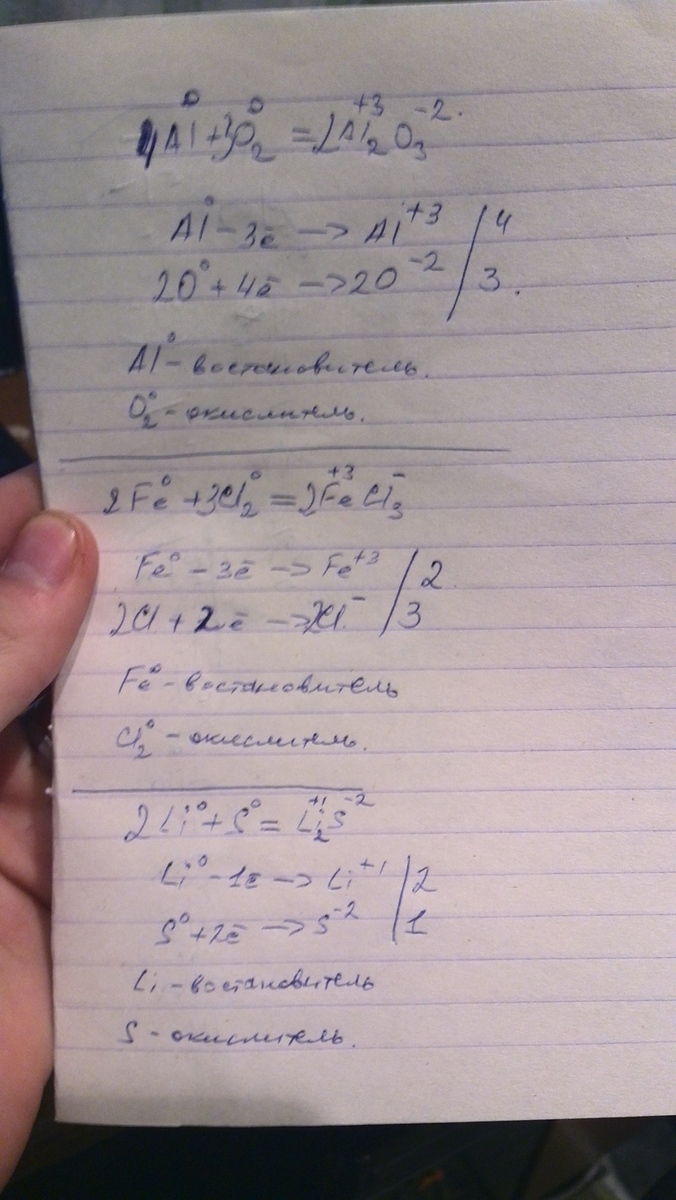 4Al⁰ + 3O₂⁰ = 2Al₂⁺³O₃⁻².
Al⁰ - 3ē -> Al⁺³ / 4
2O⁰ + 4ē -> 2O⁻² / 3.
Al⁰ - востановитель.
O₂⁰ - окислитель.
2Fe⁰ + 3Cl₂⁰ = 2Fe⁺³Cl₃⁻
Fe⁰ - 3ē -> Fe⁺³ / 2
2Cl + 2ē -> 2Cl⁻ / 3
Fe⁰ - востановитель
Cl₂⁰ - окислитель.
2Li⁰ + S⁰ = Li₂⁺¹S⁻²
Li⁰ - 1ē -> Li⁺¹ / 2
S⁰ + 2ē -> S⁻² / 1
Li - востановитель
S - окислитель.